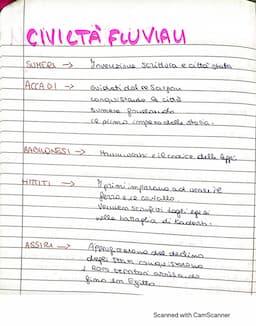 CIVILTÀ FLUVIALI
SUMERI → Invenzione scrittura e città stato
ACCADI → Guidati dal re Sargon
conquistando le città
sumere fondando
il primo impero della storia.
BABILONESI → Hammurabi e il codice delle leggi
HITTITI → I primi imparano ad usare il
ferro e il cavallo
Vennero sconfitti dagli egizi
nella battaglia di Kadesh.
ASSIRI → Approfittarono del declino
degli stati conquistarono
i loro territori arrivando
fino in Egitto
Scanned with CamScanner